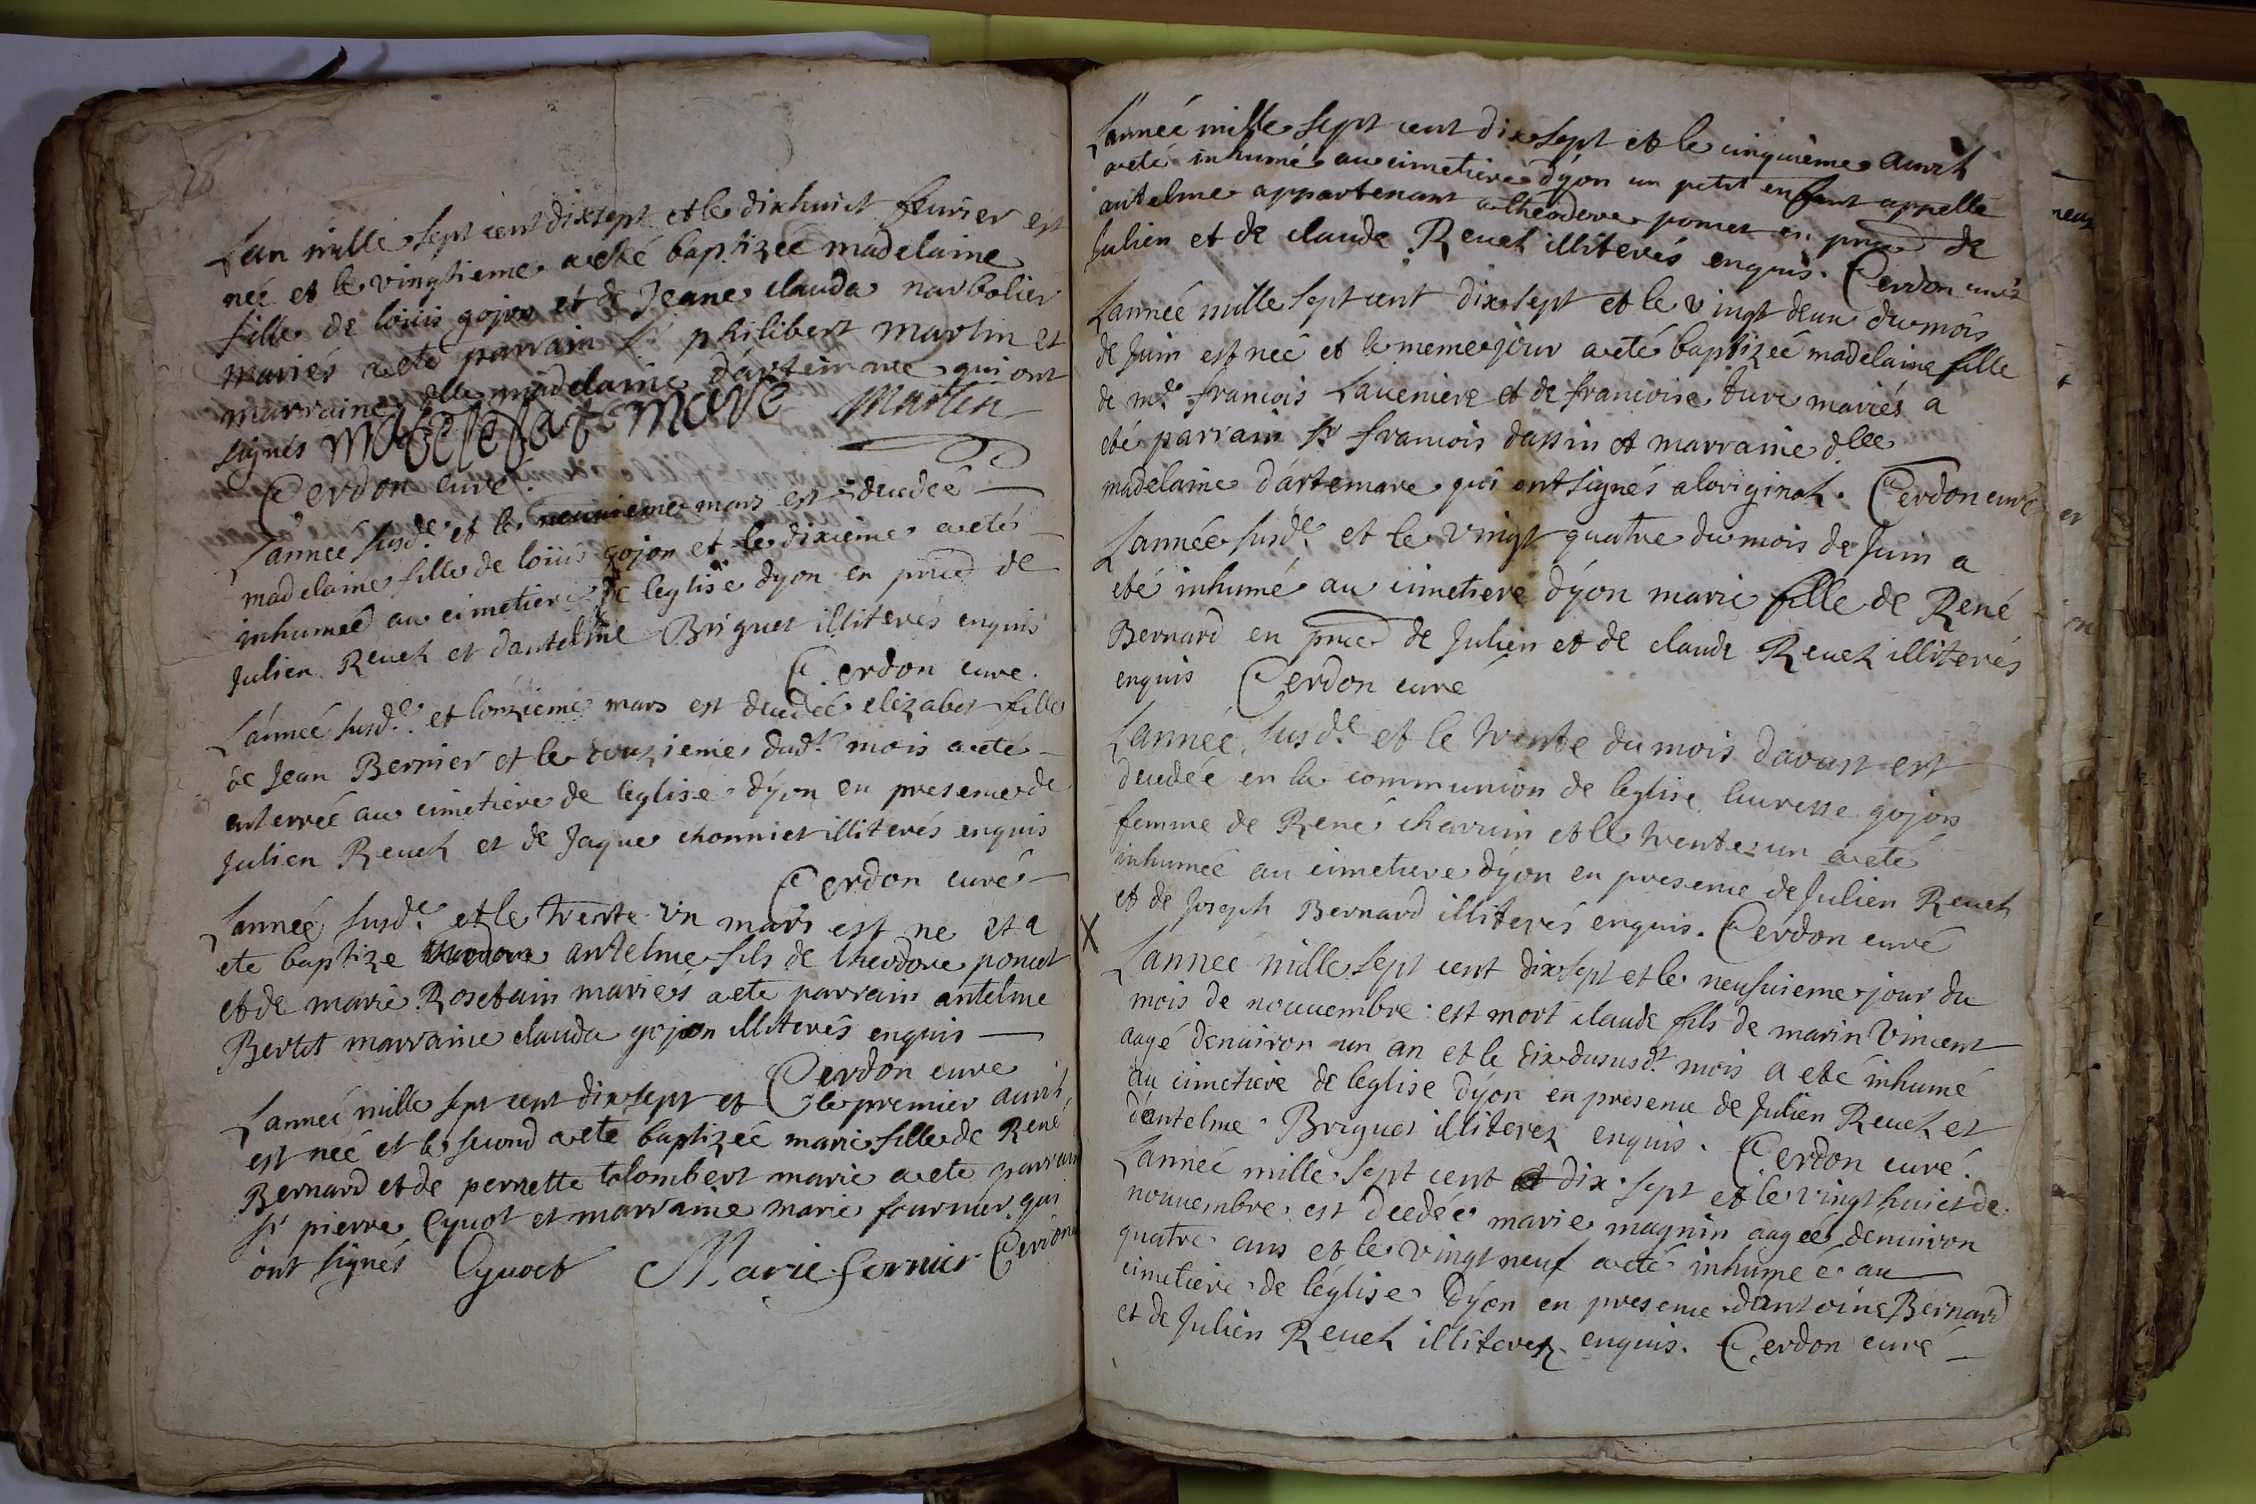 Lan mille sept cent dixsept et le dixhuict feuvrier est
neé et le vingtieme a eté baptizee madelaine
fille de loüis gojon et de Jeane clauda narbolier
mariés a eté parrain Sr philibert martin et
marraine dlle madelaine d'artemare qui ont
signés Martin
Cerdon curé.
L'année susde. et le neuvieme mars est decedée
madelaine fille de loüis gojon et le dixieme a eté
inhumeé au cimetiere de leglise dyon en prnce de
Julien Reuel et dantelme Briguet illiterés enquis
Cerdon cure.
L'année susde. et lonzieme mars est decedée elizabet fille
de Jean Bernier et le douzieme dudt. mois a eté
enterrée au cimetiere de l'eglise dÿon en presence de
Julien Reuel et de Jaque chonniet illiterés enquis
Cerdon curé
L'année susde. et le trente un mars est ne et a
ete baptize antelme fils de theodore poncet
et de marie Rosetain mariés a ete parrain antelme
Bertet marraine clauda gojon illiterés enquis
Cerdon cure
L'anneé mille sept cent dixsept et le premier auril
est neé et le second a ete baptizeé marie fille de René
Bernard et de pernette tolombert marie a ete parrain
Sr pierre Cyuot et marraine marie fournier qui
ont signés Cyuoct Marie fornier Cerdon
L'anneé mille sept cent dixsept et le cinquieme auril
a eté inhumé au cimetiere dÿon un petit enfant appellé
antelme appartenant a theodore poncet en prnce de
Julien et de claude Reuel illiterés enquis. Cerdon curé
L'anneé mille sept cent dixsept et le vingt deux du mois
de Juin est neé et le meme jour a eté baptizeé madelaine fille
de mre francois Laueniere et de francoise ture mariés a
eté parrain Sr francois dassin et marraine dlle
madelaine d'artemare qui ont signés a loriginal. Cerdon curé
L'anneé susde. et le vingt quatre du mois de Juin a
eté inhumé au cimetiere dÿon marie fille de René
Bernard en prnce de Julien et de claude Reuel illiterés
enquis Cerdon curé
L'anneé susde et le trente du mois d'aoust est
decedée en la communion de leglise gojon
femme de René charuin et le trente un a eté
inhumeé au cimetiere dÿon en presence de Julien Reuel
et de Joseph Bernard illiterés enquis. Cerdon curé
X
L'anneé mille sept cent dixsept et le neufuieme jour du
mois de nouuembre : est mort claude fils de marin Vincent
aagé denuiron un an et le dix du susdt. mois a eté inhumé
au cimetiere de leglise dÿon en presence de Julien Reuel et
d'antelme Briguet illiterez enquis. Cerdon curé.
L'anneé mille sept cent dix sept et le vingt huict de
nouuembre est decedée marie magnin aageé denuiron
quatre ans et le vingt neuf a eté inhumeé au
cimetiere de l'eglise dÿon en presence d'antoine Bernard
et de Julien Reuel illiterez enquis. Cerdon curé